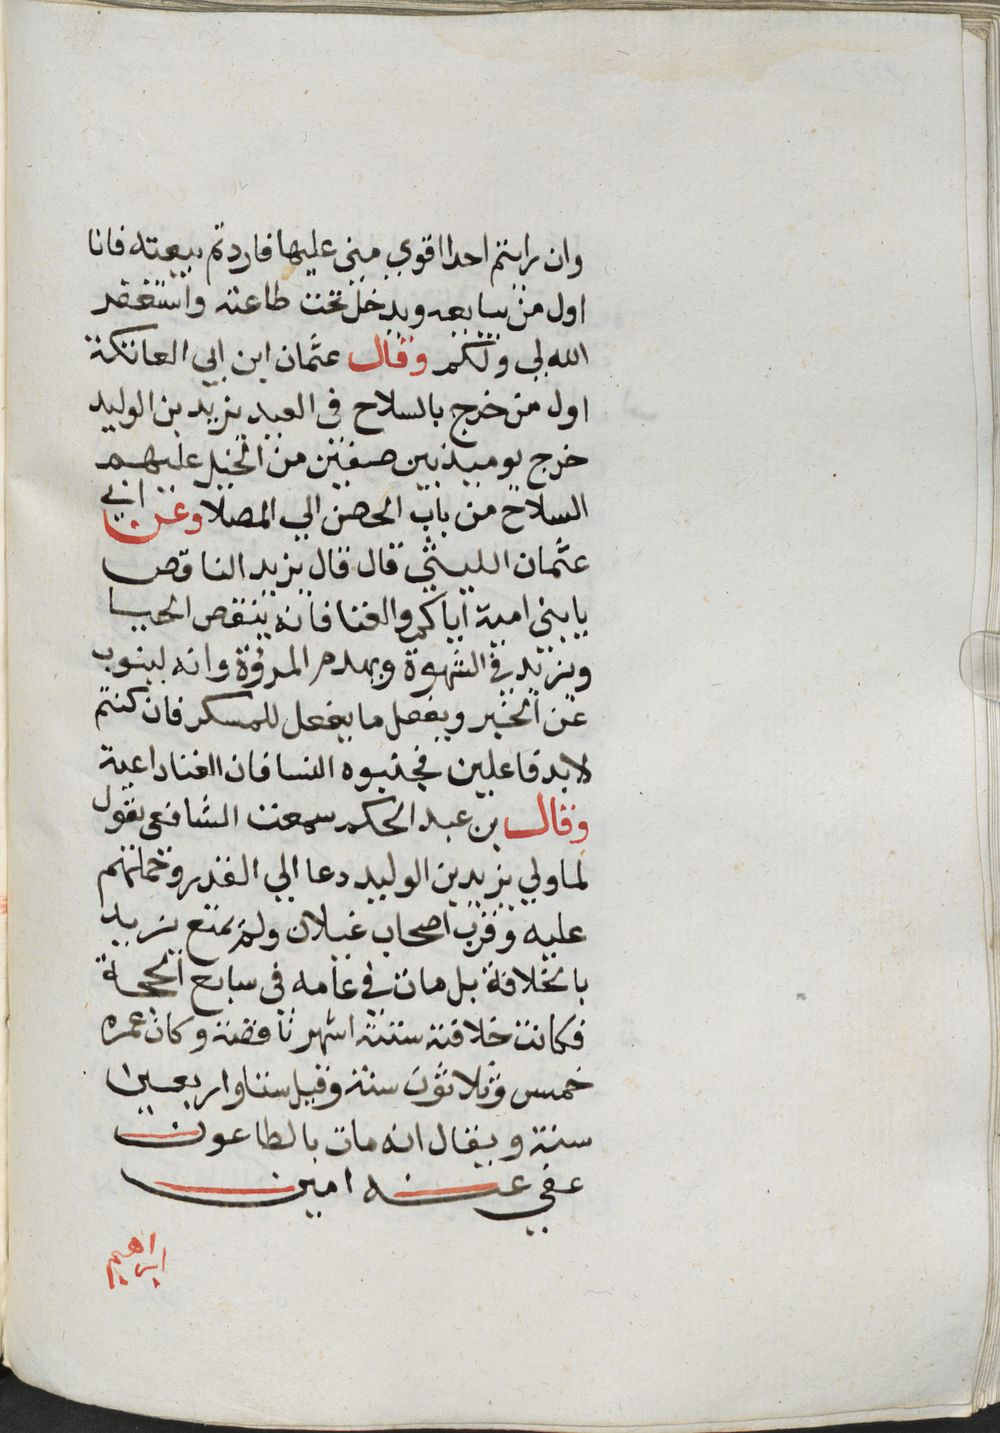 وان رايتم احدا اقوي مني عليها فاردتم بيعته فانا
اول من يبايعه ويدخل تحت طاعته واستغفر
الله لي ولكم وقال عثمان ابن ابي العاتكة
اول من خرج بالسلاح في العيد يزيد بن الوليد
خرج يوميذ بين صفين من الخيل عليهم
السلاح من باب الحصن الي المصلا وعن ابي
عثمان الليثي قال قال يزيد الناقص
يا بني امية اياكم والغنا فانه ينقص الحيا
ويزيد في الشهوة ويهدم المرؤة وانه لينوب
عن الخير ويفعل ما يفعل المسكر فان كنتم
لابد فاعلين فجنبوه النسا فان الغنا داعية
وقال بن عبد الحكم سمعت الشافعي يقول
لما ولي يزيد بن الوليد دعا الي القدر وحملهم
عليه وقرب اصحاب غيلان ولم يمتع يزيد
بالخلافة بل مات في عامه في سابع الحجة
فكانت خلافته ستة اشهر ناقصة وكان عمره
خمس وثلاثون سنة وقيل ستا واربعين
سنة ويقال انه مات بالطاعون
عفي عنه امين
ابراهيم